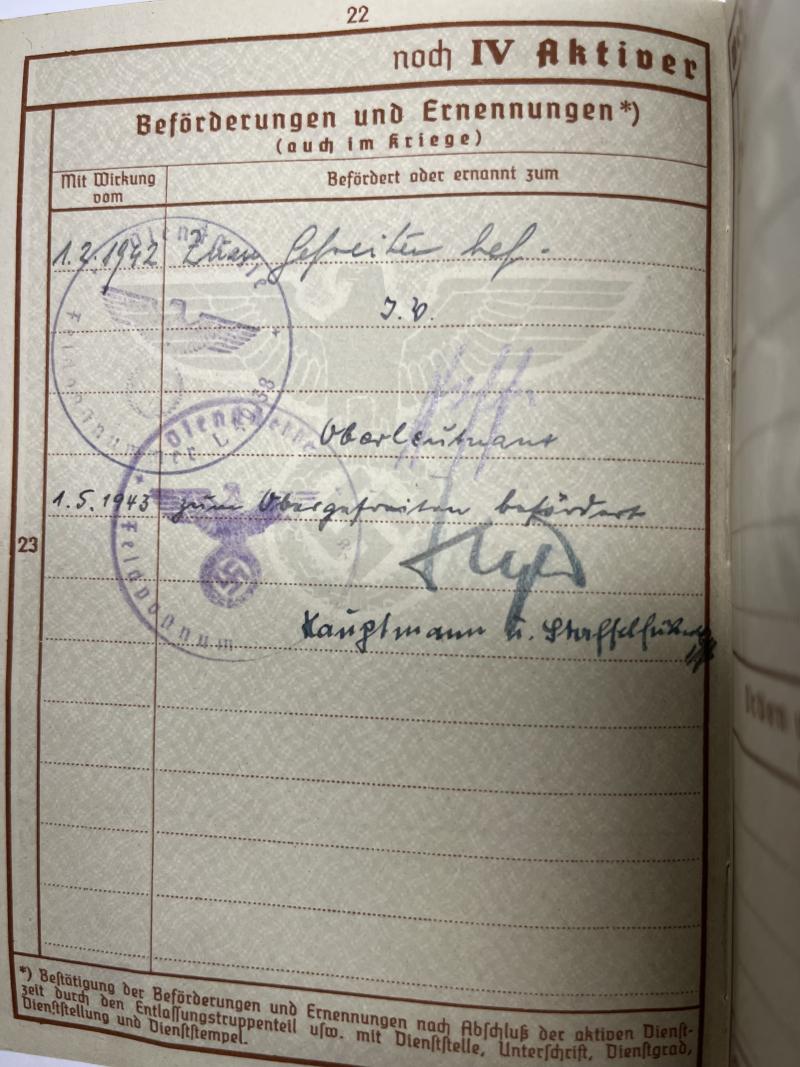 22
noch IV Aktiver
Beförderungen und Ernennungen*)
(auch im Kriege)
Mit Wirkung vom
Befördert oder ernannt zum
1.2.1942 Zum Gefreiten bef.
I.V.
Oberleutnant
1.5.1943 zum Obergefreiten befördert
23
Hauptmann u. Staffelführer
Dienststelle
Feldpostnummer L
Dienststelle
Feldpostnum
*) Bestätigung der Beförderungen und Ernennungen nach Abschluß der aktiven Dienst-
zeit durch den Entlassungstruppenteil usw. mit Dienststelle, Unterschrift, Dienstgrad,
Dienststellung und Dienststempel.